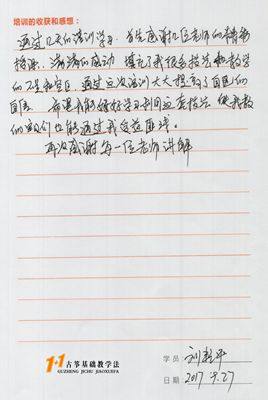 培训的收获和感想：
通过几天的培训学习，首先感谢几位老师的精彩
授课，满满的感动，填充了我很多技法和教学
的不足和空白，通过这次培训大大提高了自己的
自信，希望我能够好好学习利用这套技法，使我教
的孩们也能通过我受益匪浅。
再次感谢每一位老师讲解
1+1 古筝基础教学法
GUZHENG JICHU JIAOXUEFA
学员 刘 平
日期 2017.9.27